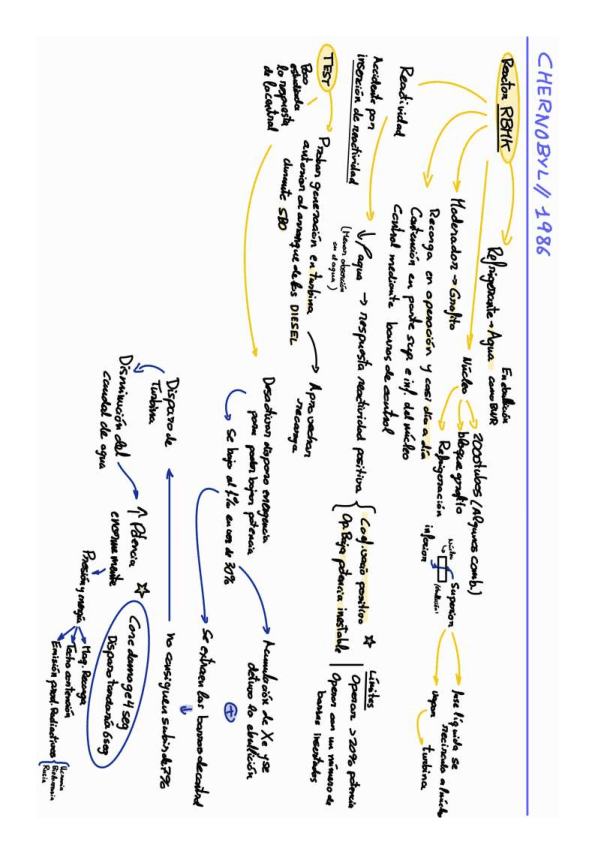 CHERNOBYL // 1986
Reactor RBMK
Refrigerante → Agua
En ebullición
como BWR
Núcleo
2000 tubos (Algunos comb.)
bloque grafito
Refrigeración
inferior
Superior
fase líquida se
recircula a núcleo
vapor
turbina
Moderador → Grafito
Recarga en operación y casi día a día
Contención en parte sup. e inf. del núcleo
Control mediante barras de control
Reactividad
Accidente por
inserción de reactividad
↓ρ agua → respuesta reactividad positiva
(Menor absorción
en el agua)
Coef. vacío positivo
Op. Baja potencia inestable
Límites
Operar > 20% potencia
Operar con un número de
barras insertadas
TEST
Poco
estudiada
la respuesta
de la central
Probar generación en turbina
anterior al arranque de los DIESEL
durante SBO
Aprovechan
recarga
Desactivan disparo emergencia
para poder bajar potencia
Se bajó al 1% en vez de 30%
Acumulación de Xe y se
detuvo la ebullición
Se extraen las barras de control
no consiguen subir de 7%
Disparo de
Turbina
Disminución del
caudal de agua
↑ Potencia
enormemente
Presión y energía
Maq. Recarga
Techo contención
Emisión prod. Radiactivos
Ucrania
Bielorrusia
Rusia
Core damage 4 seg
Disparo tardaría 6 seg